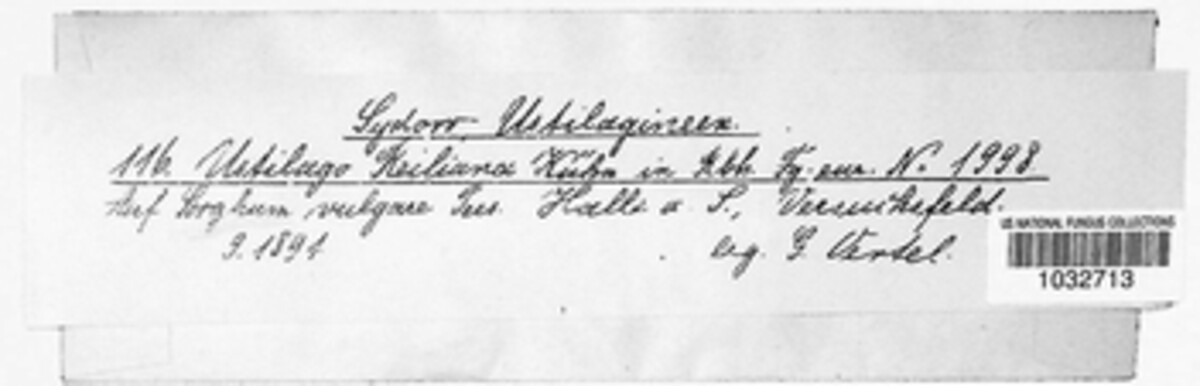 Sydow, Ustilagineen.
116. Ustilago Reiliana Kühn in Rbh. Fg. eur. N. 1998.
Auf Sorghum vulgare Pers. Halle a. S., Versuchsfeld.
9. 1891
leg. G. Oertel.
US NATIONAL FUNGUS COLLECTIONS
1032713